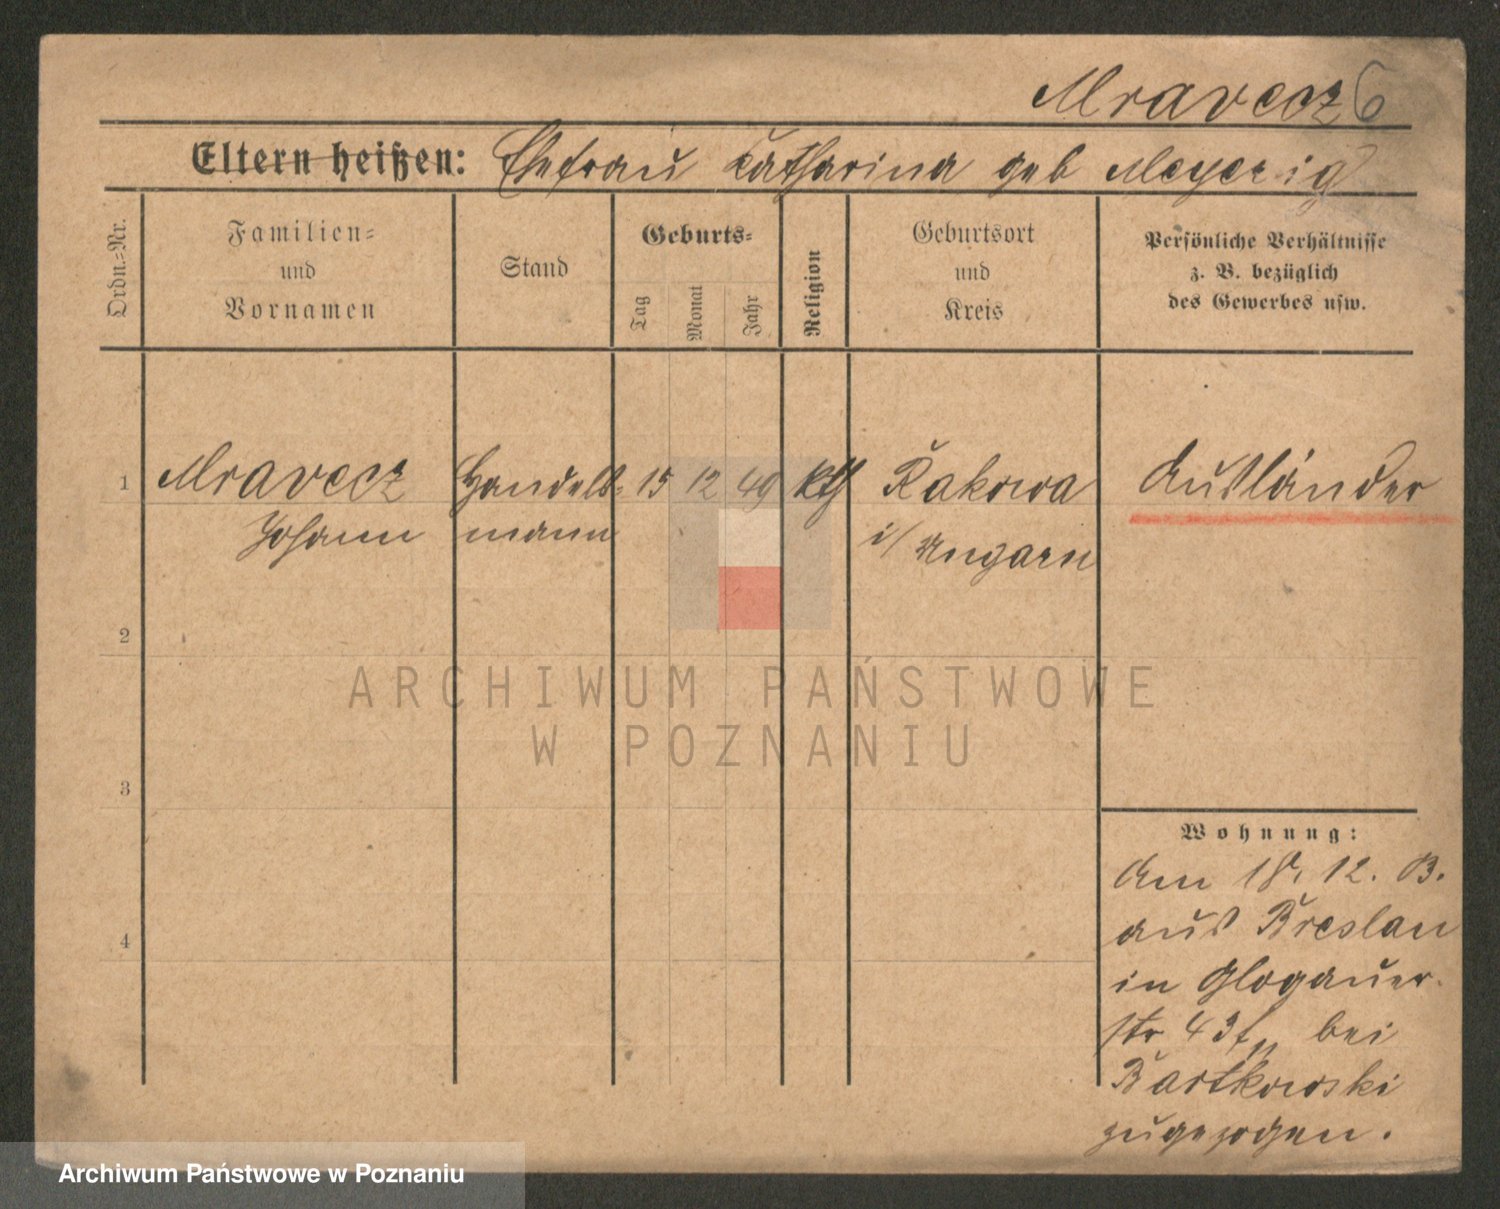 Mravecz 6
Eltern heißen: Ehefrau Katharina geb Meyerig
Ordn.-Nr.
Familien-
und
Vornamen
Stand
Geburts-
Tag
Monat
Jahr
Religion
Geburtsort
und
Kreis
Persönliche Verhältnisse
z. B. bezüglich
des Gewerbes usw.
1 Mravecz Handels- 15 12 49 kth Rakowa Ausländer
Johann mann i/ Ungarn
2
ARCHIWUM PAŃSTWOWE
W POZNANIU
3
Wohnung:
Am 18. 12. 13.
aus Breslau
4
in Glogauer-
str 43 bei
Bartkowski
zugezogen.
Archiwum Państwowe w Poznaniu